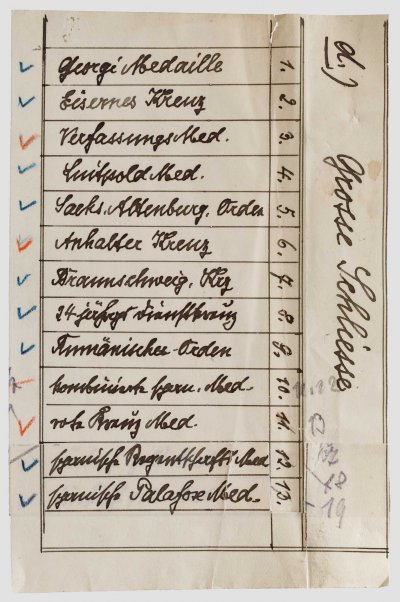 d.) Grosse Schliesse
Georgi Medaille 1.
Eisernes Kreuz 2.
Verfassungs Med. 3.
Luitpold Med. 4.
Sachs. Altenburg. Orden 5.
Anhalter Kreuz 6.
Braunschweig. Krz 7.
24 jährgs Dienstkreuz 8.
Rumänischer Orden 9.
kombinierte span. Med. 10.
rote Kreuz Med. 11.
spanische Regentschafts Med 12.
spanische Palafox Med. 13.
17
18
19